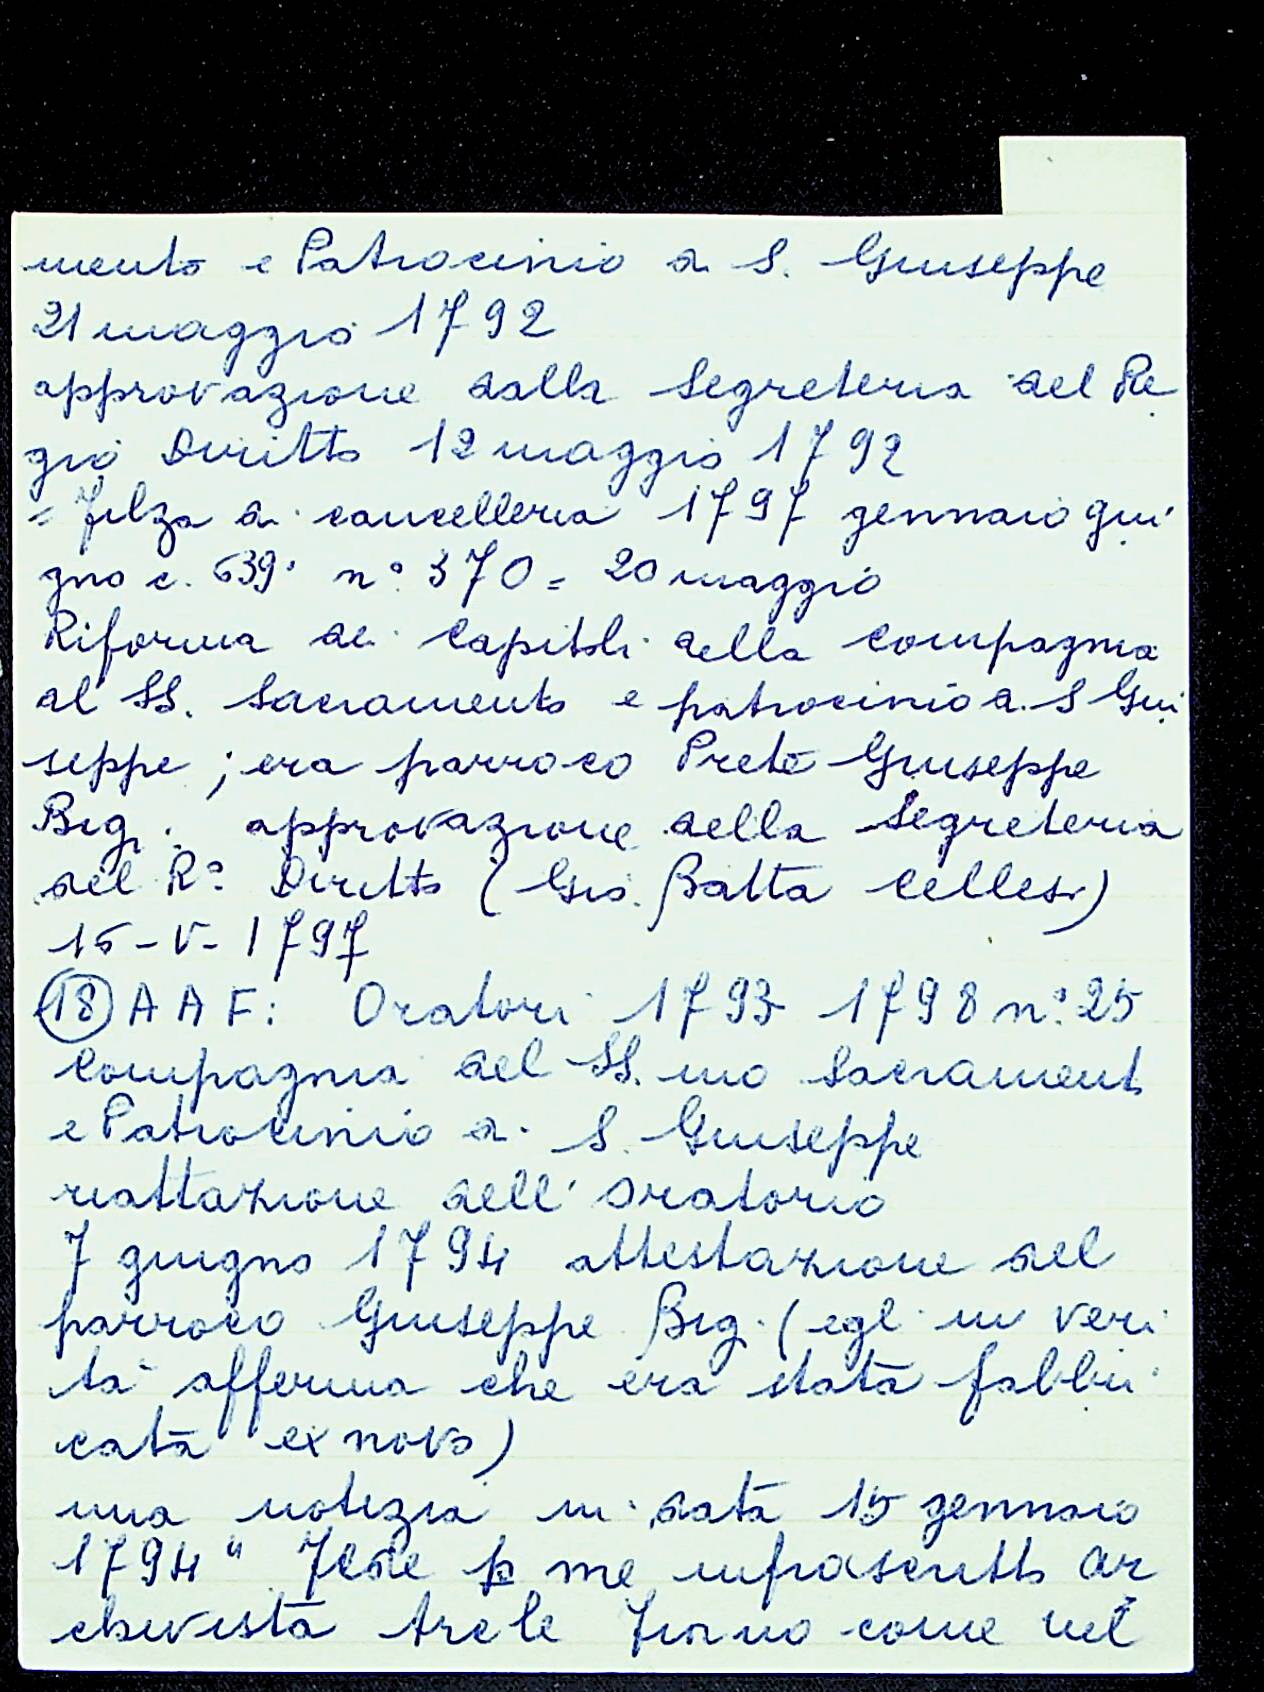 mento e Patrocinio di S. Giuseppe
21 maggio 1792
approvazione dalla Segreteria del Re
gio Diritto 12 maggio 1792
= Filza di cancelleria 1797 gennaio giu
gno c. 639. n° 370 = 20 maggio
Riforma dei Capitoli della Compagnia
del SS. Sacramento e patrocinio di S Giu
seppe ; era parroco Prete Giuseppe
Bigi. approvazione della Segreteria
del R° Diritto (Gio. Batta Cellesi)
15-V-1797
(18) A A F: Oratori 1793 1798 n° 25
Compagnia del SS.mo Sacrament
e Patrocinio di S. Giuseppe
riattazione dell' oratorio
7 giugno 1794 attestazione del
parroco Giuseppe Bigi (egli in veri
tà afferma che era stata fabbri
cata ex novo)
una notizia in data 15 gennaio
1794 " Fede p me infrascritto ar
chivista Arc le Fior no come nel